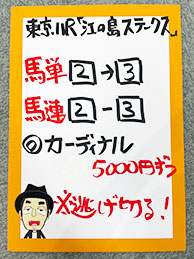 東京11R「江の島ステークス」
馬単 2→3
馬連 2-3
◎カーディナル
5000円ずつ
※逃げ切る!